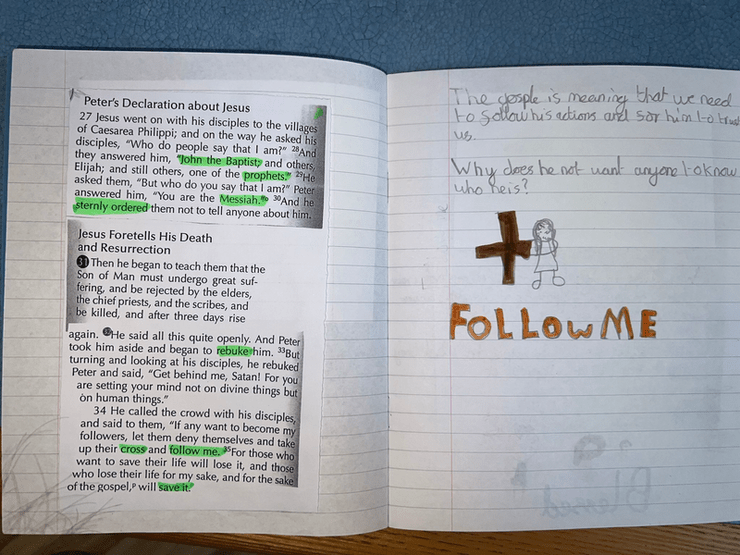 Peter's Declaration about Jesus
27 Jesus went on with his disciples to the villages
of Caesarea Philippi; and on the way he asked his
disciples, "Who do people say that I am?" 28And
they answered him, "John the Baptist; and others,
Elijah; and still others, one of the prophets." 29He
asked them, "But who do you say that I am?" Peter
answered him, "You are the Messiah."o 30And he
sternly ordered them not to tell anyone about him.
Jesus Foretells His Death
and Resurrection
31 Then he began to teach them that the
Son of Man must undergo great suf-
fering, and be rejected by the elders,
the chief priests, and the scribes, and
be killed, and after three days rise
again. 32He said all this quite openly. And Peter
took him aside and began to rebuke him. 33But
turning and looking at his disciples, he rebuked
Peter and said, "Get behind me, Satan! For you
are setting your mind not on divine things but
on human things."
34 He called the crowd with his disciples,
and said to them, "If any want to become my
followers, let them deny themselves and take
up their cross and follow me. 35For those who
want to save their life will lose it, and those
who lose their life for my sake, and for the sake
of the gospel,p will save it.
The gosple is meaning that we need
to follow his actions and for him to trust
us.
Why does he not want anyone to know
who he is?
FOLLOW ME
Blessed